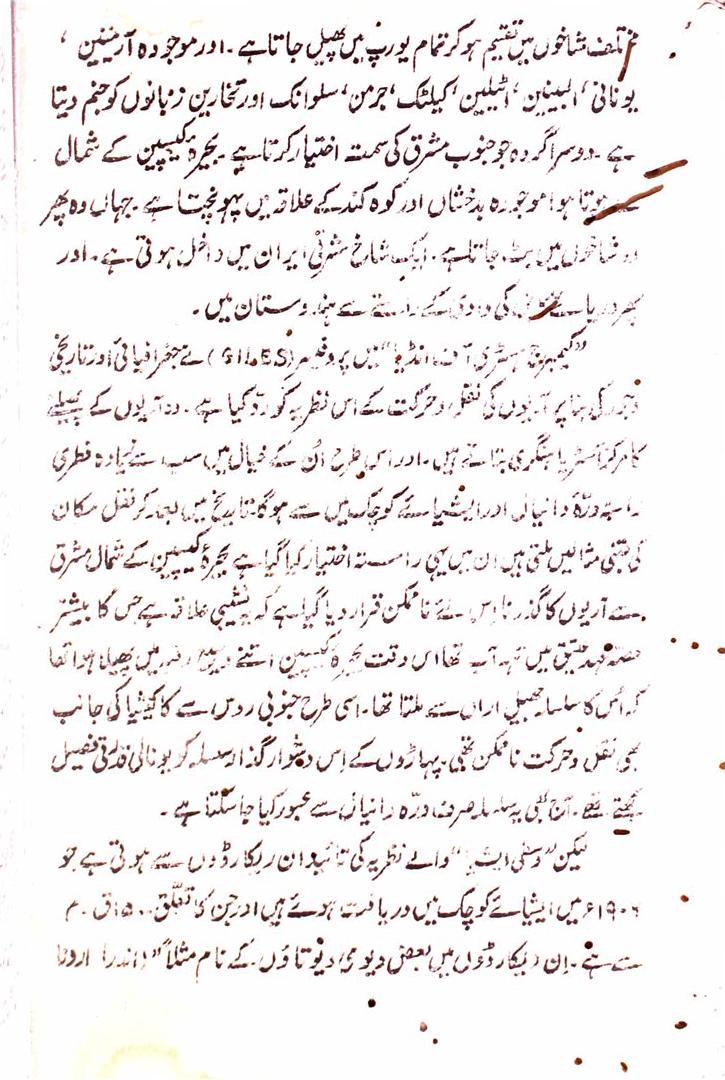 مختلف شاخوں میں تقسیم ہو کر تمام یورپ میں پھیل جاتا ہے ۔ اور موجودہ آرمینین ‘
یونانی ‘ البینین ‘ اٹیلین ‘ کیلٹک ‘ جرمن ‘ سلوانک اور تخارین زبانوں کو جنم دیتا
ہے ۔ دوسرا گروہ جو جنوب مشرق کی سمت اختیار کرتا ہے ۔ بحیرۂ کیسپین کے شمال
ہوتا ہوا موجودہ بدخشاں اور کوہ کند کے علاقہ میں پہونچتا ہے ۔ جہاں وہ پھر
دو شاخوں میں بٹ جاتا ہے ۔ ایک شاخ مشرقی ایران میں داخل ہوتی ہے ۔ اور
پھر دریائے کی وادی کے راستے سے ہندوستان میں ۔
”کیمبرج ہسٹری آف انڈیا“ میں پروفیسر (GILES) نے جغرافیائی اور تاریخی
وجوہ کی بنا پر آریوں کی نقل و حرکت کے اس نظریہ کو رد کیا ہے ۔ وہ آریوں کے پھیلنے
کا مرکز آسٹریا ہنگری بتاتے ہیں ۔ اور اس طرح اُن کے خیال میں سب سے زیادہ فطری
راستہ درّۂ دانیال اور ایشیائے کوچک میں سے ہوگا ۔ تاریخ میں بعد کو نقل مکان
کی جتنی مثالیں ملتی ہیں ان میں یہی راستہ اختیار کیا گیا ہے بحیرۂ کیسپین کے شمال مشرق
سے آریوں کا گذرنا اس لئے ناممکن قرار دیا گیا ہے کہ یہ نشیبی علاقہ ہے جس کا بیشتر
حصّہ عہد عتیق میں تہہ آب تھا اس وقت بحیرۂ کیسپین اتنے وسیع رقبہ میں پھیلا ہوا تھا
کہ اُس کا سلسلہ جھیل اراں سے ملتا تھا ۔ اسی طرح جنوبی روس سے کاکیشیا کی جانب
بھی نقل و حرکت ناممکن تھی ۔ پہاڑوں کے اِس دشوار گذار سلسلہ کو یونانی قدرتی فصیل
کہتے تھے ۔ آج بھی یہ سلسلہ صرف درّہ دانیال سے عبور کیا جا سکتا ہے ۔
لیکن ”وسطی ایشیا“ والے نظریہ کی تائید ان ریکارڈوں سے ہوتی ہے جو
۱۹۰۶ء میں ایشیائے کوچک میں دریافت ہوئے ہیں اور جن کا تعلّق ۱۵۰۰ ق ۔ م
سے ہے ۔ اِن ریکارڈوں میں بعض دیوی دیوتاؤں کے نام مثلاً ”(اندرا ارونا